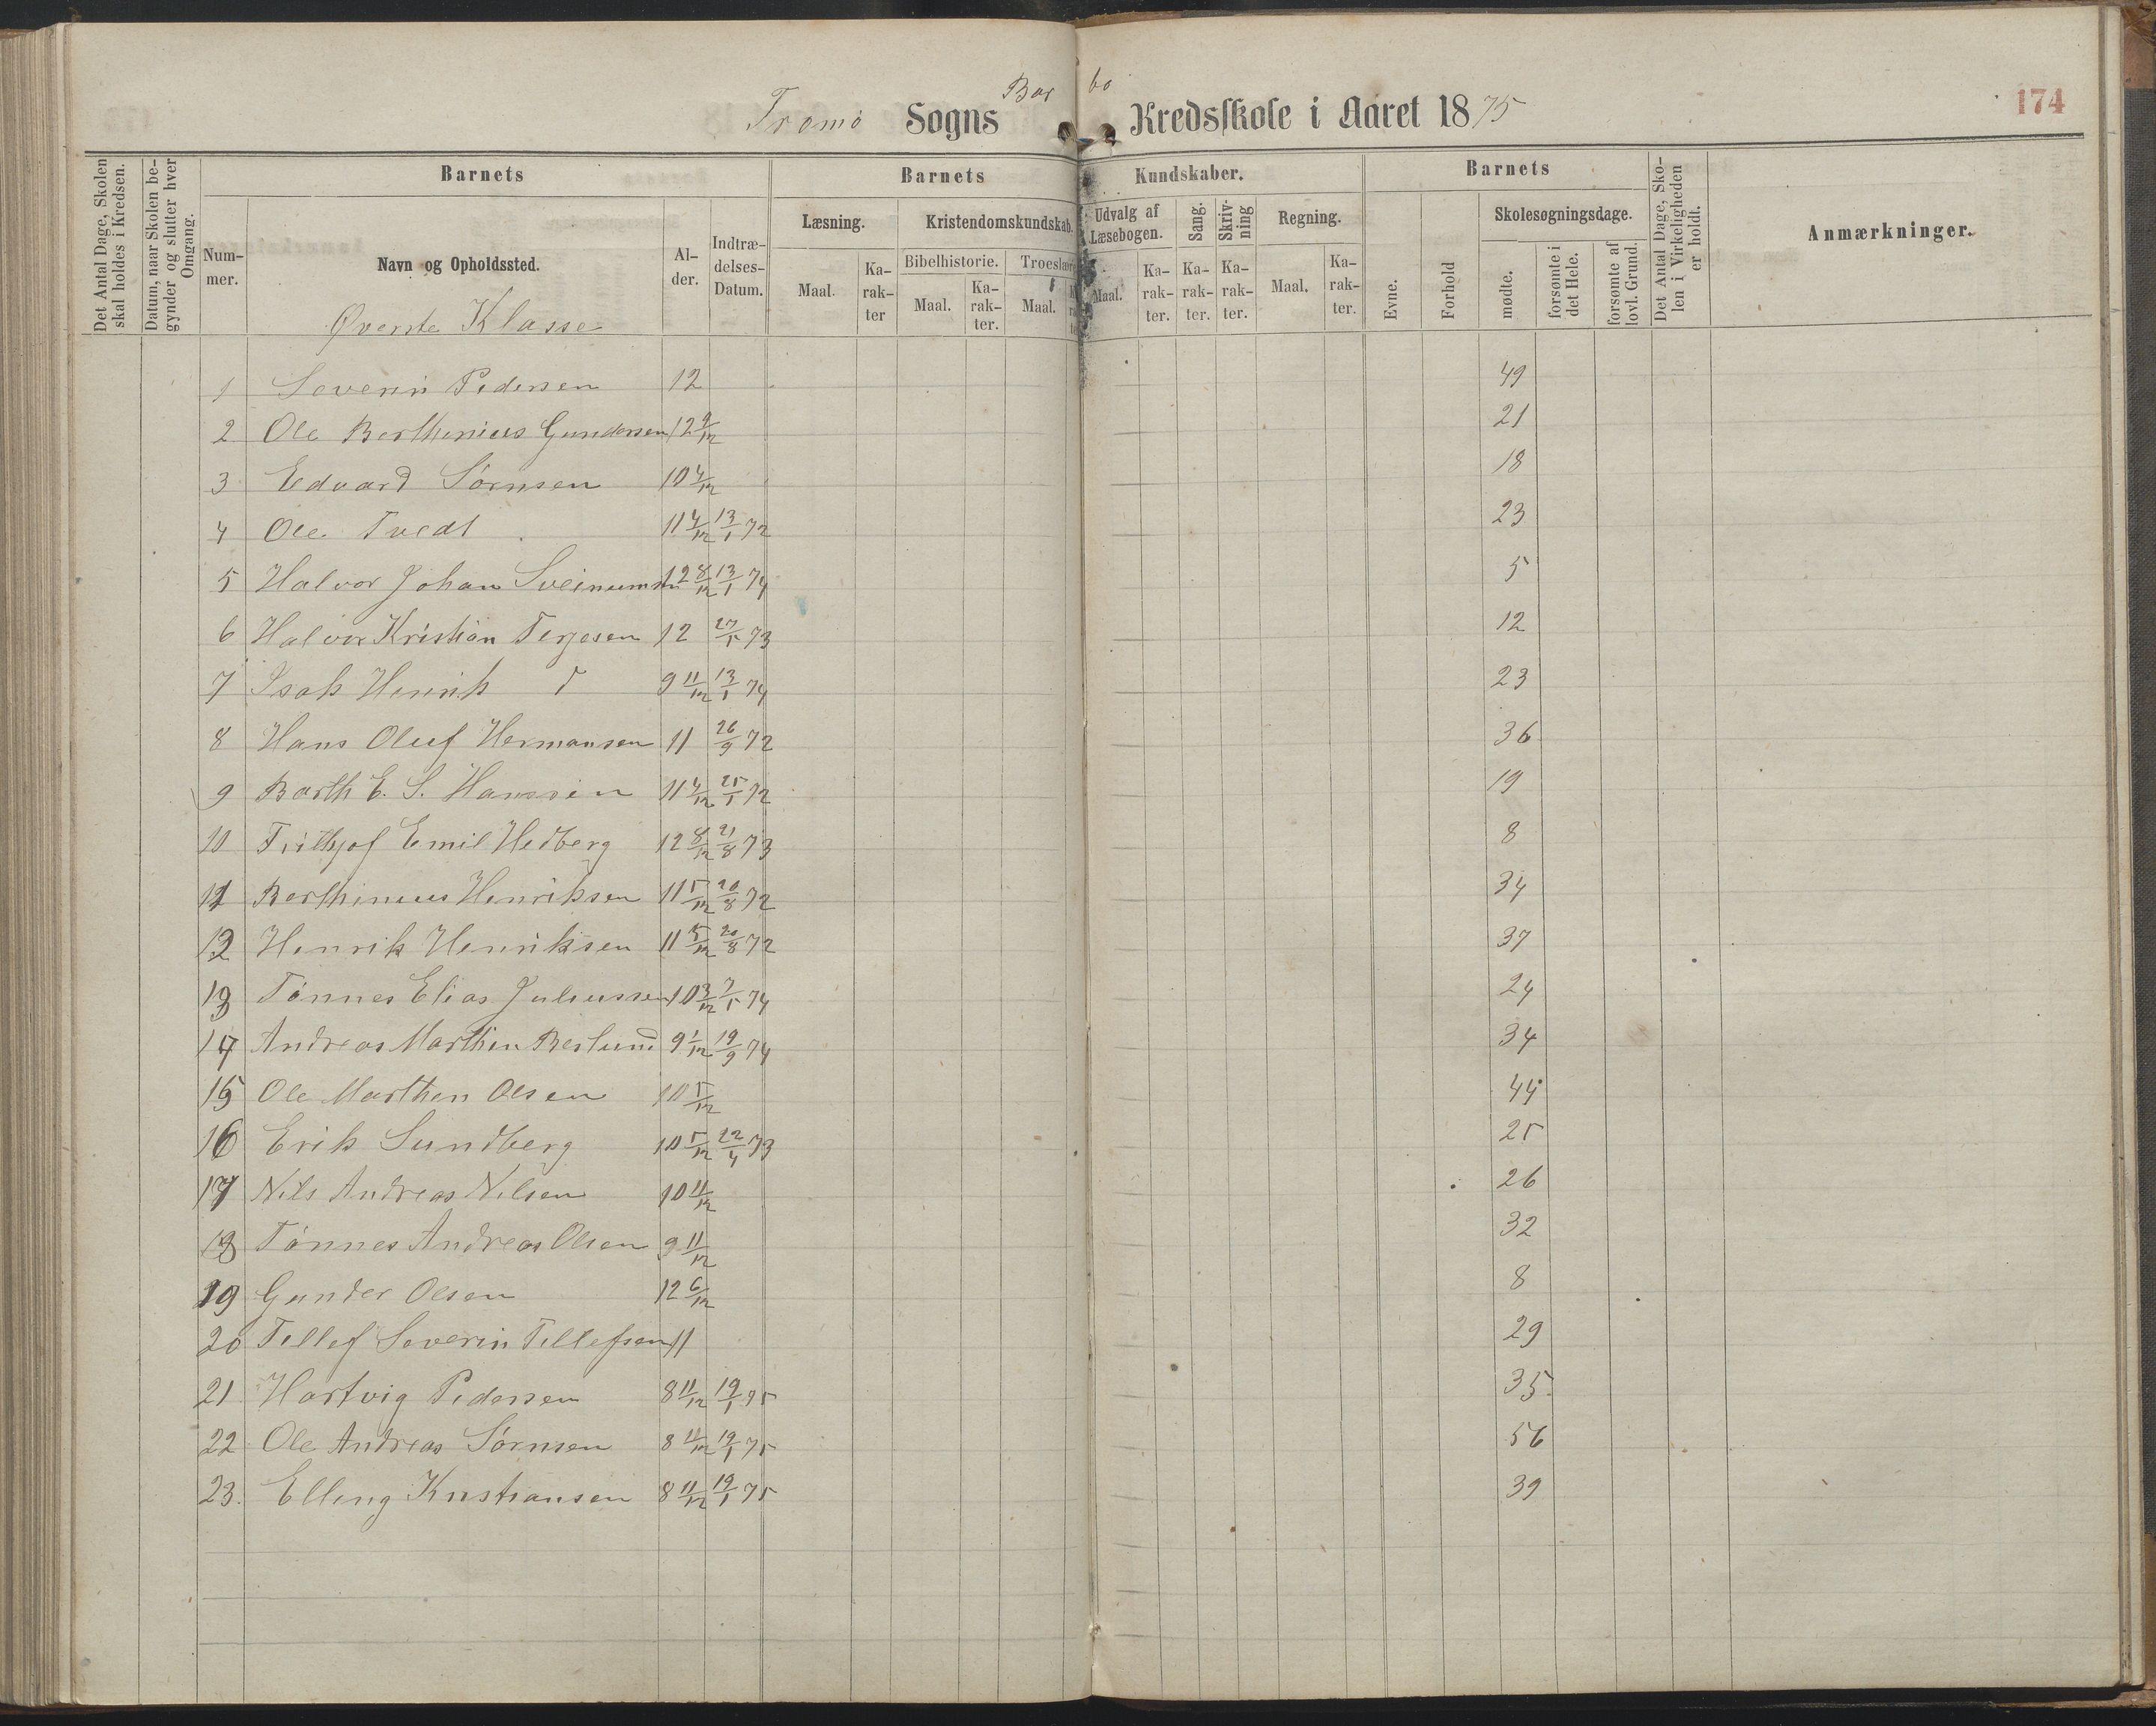 Bar bo
Tromø Sogns Kredsskole i Aaret 1875
174
Det Antal Dage, Skolen skal holdes i Kredsen.
Datum, naar Skolen begynder og slutter hver Omgang.
Barnets
Nummer.
Navn og Opholdssted.
Alder.
Indtrædelses-Datum.
Barnets Kundskaber.
Læsning.
Maal.
Karakter
Kristendomskundskab.
Bibelhistorie.
Maal.
Karakter.
Troeslære
Maal.
Udvalg af Læsebogen.
Maal.
Karakter.
Sang.
Karakter.
Skrivning
Karakter.
Regning.
Maal.
Karakter.
Barnets
Evne.
Forhold
Skolesøgningsdage.
mødte.
forsømte i det Hele.
forsømte af lovl. Grund.
Det Antal Dage, Skolen i Virkeligheden er holdt.
Anmærkninger.
Øverste Klasse
1 Severin Pedersen 12 49
2 Ole Berthinius Gundersen 12 9/12 21
3 Edvard Sørnsen 10 4/12 18
4 Ole Tvedt 11 4/12 13/1 72 23
5 Halvor Johan Sveinumsen 12 8/12 13/1 74 5
6 Halvor Kristian Terjesen 12 27/5 73 12
7 Isak Henrik 9 11/12 13/1 74 23
8 Hans Oluf Hermansen 11 26/9 72 36
9 Barth E. S. Hanssen 11 4/12 25/1 72 19
10 Frithjof Emil Hedberg 12 8/12 21/8 73 8
11 Berthinius Henriksen 11 5/12 20/8 72 34
12 Henrik Henriksen 11 5/12 20/8 72 37
13 Tønnes Elias Juliussen 10 3/12 7/5 74 24
14 Andreas Marthin Berlund 9 1/12 19/9 74 34
15 Ole Marthen Olsen 10 5/12 44
16 Erik Sundberg 10 5/12 22/4 73 25
17 Nils Andreas Nilsen 10 11/12 26
18 Tønnes Andreas Olsen 9 11/12 32
19 Gunder Olsen 12 6/12 8
20 Tellef Severin Tellefsen 11 29
21 Hartvig Pedersen 8 11/12 19/1 75 35
22 Ole Andreas Sørnsen 8 11/12 19/1 75 56
23. Elling Kristiansen 8 11/12 19/1 75 39